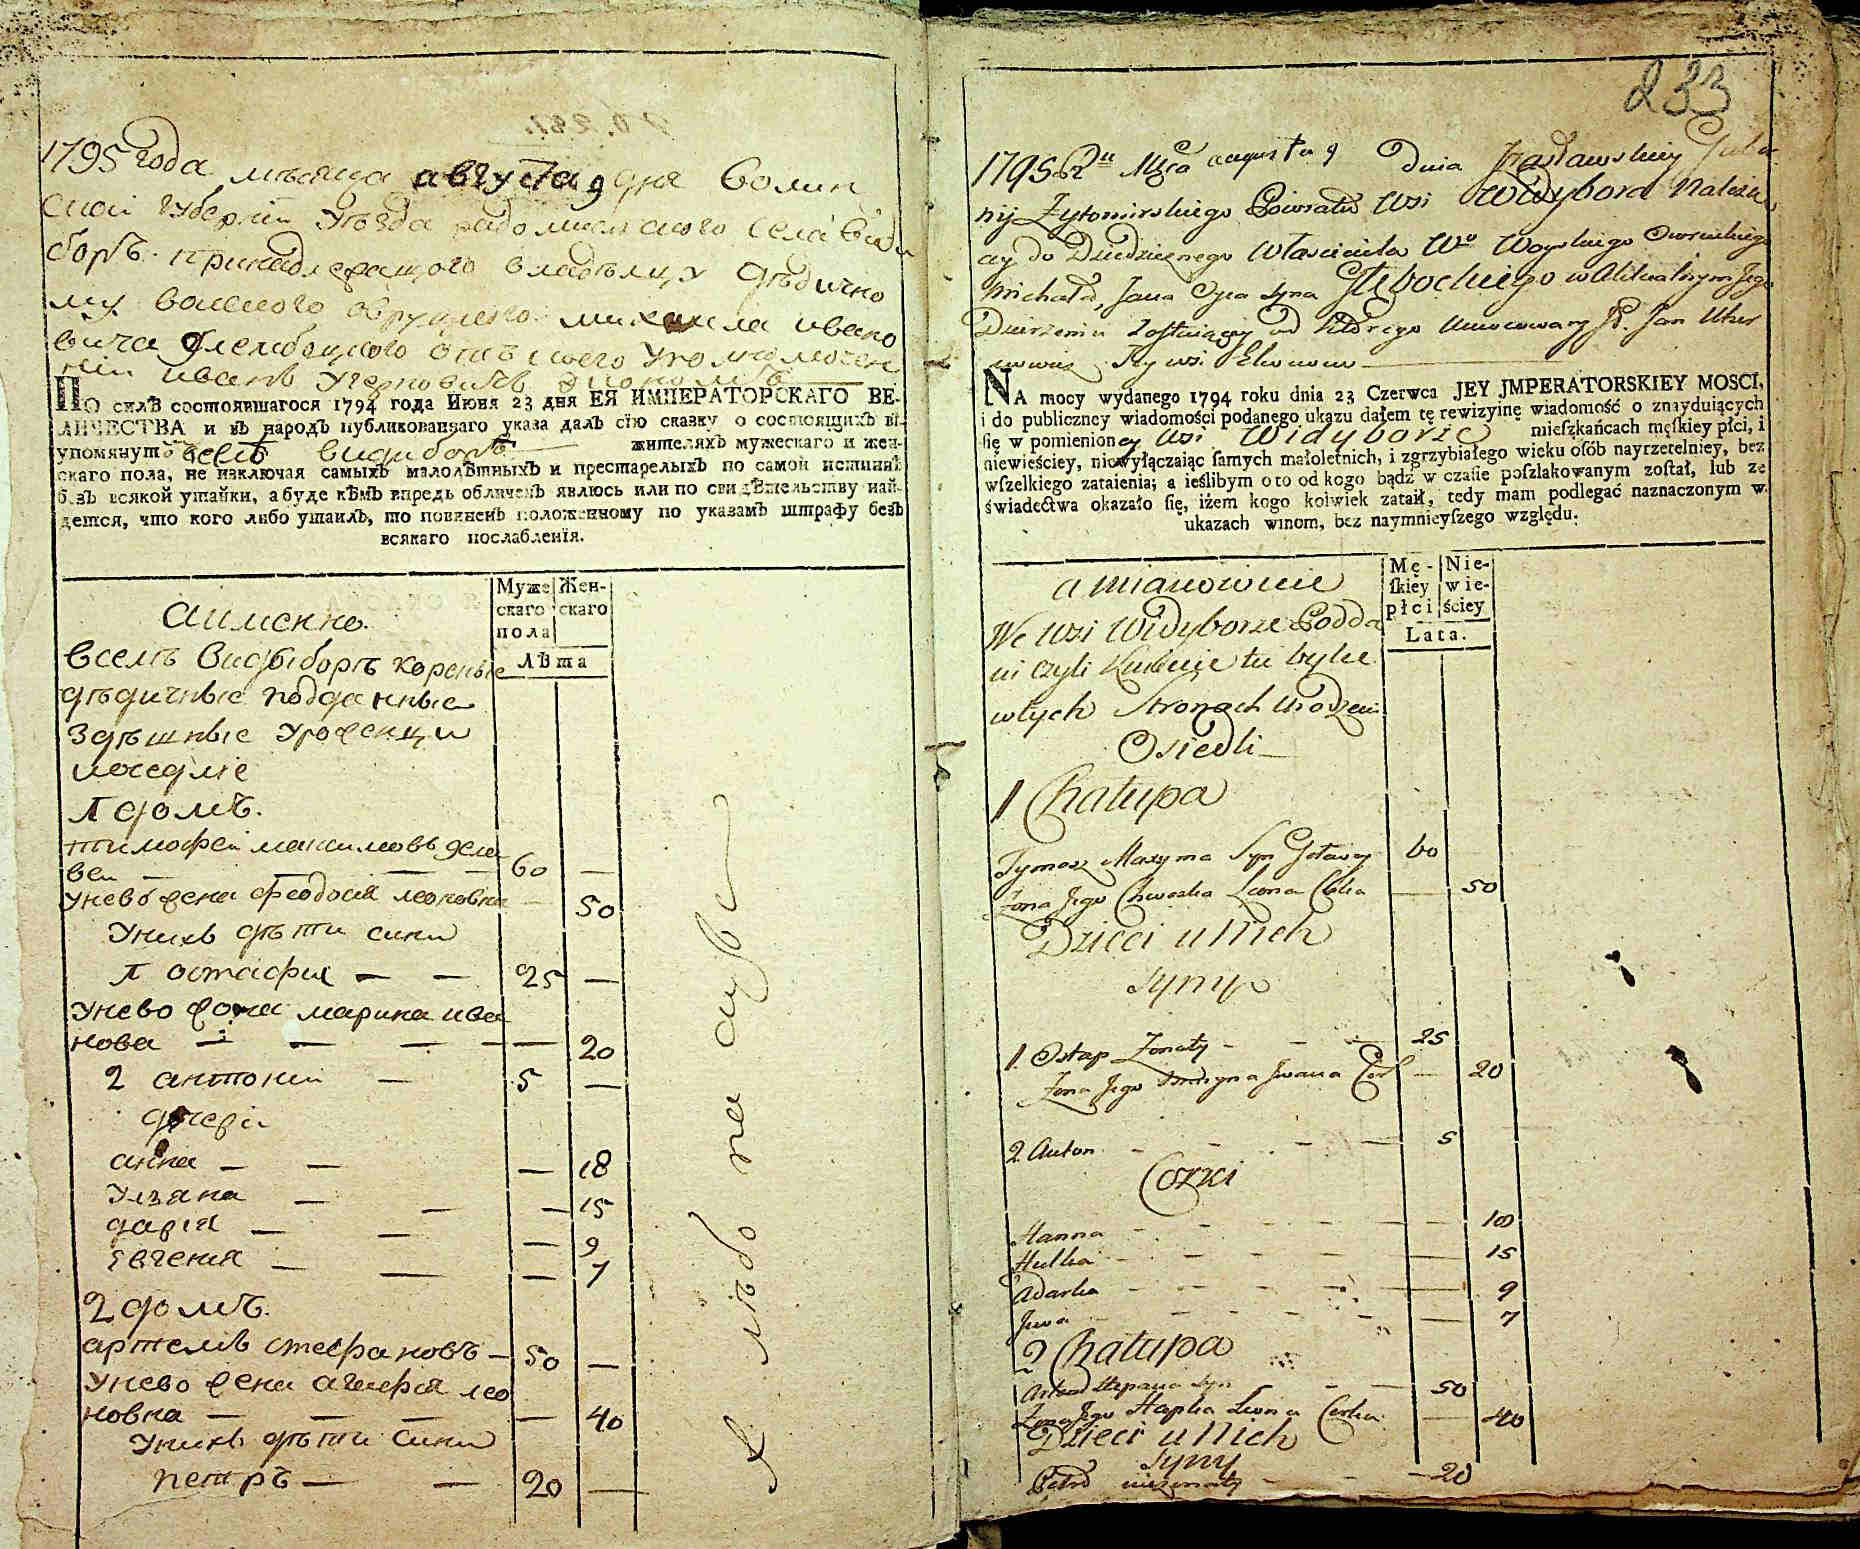 1795 года мѣсяца августа 9 дня волин
ской губернiи уѣзда радомысльского села види
боръ принадлежащого владѣлцу дѣдично
му войского овруцкого михаила ивано
вича глембоцкого отъ
иванъ
ПО силѣ состоявшагося 1794 года Июня 23 дня ЕЯ ИМПЕРАТОРСКАГО ВЕ-
ЛИЧЕСТВА и въ народъ публикованнаго указа далъ сiю сказку о состоящихъ въ
упомянутомъ селѣ видиборѣ жителяхъ мужескаго и жен-
скаго пола, не изключая самыхъ малолѣтныхъ и престарелыхъ по самой истиннѣ
безъ всякой утайки, а буде кѣмъ впредь обличенъ явлюсь или по свидѣтельству най-
дется, что кого либо утаилъ, то повиненъ положенному по указамъ штрафу безъ
всякаго послабленiя.
Муже Жен-
скаго скаго
пола
Лѣта
аимекно.
вселѣ видиборѣ кореные
дѣдичные подданные
здѣшные уроженци
1 домъ.
тимофей максимовъ
вен — — — 60 —
унево жена феодосiя леоновна — 50
унихъ дѣти сини
1 остафiй — — 25 —
унево жона марина ива
нова — — — — 20
2 антонiй — 5 —
дочери
анна — — — 18
улзяна — — — 15
дарiя — — — 9
евгения — — — 7
2 домъ.
артемъ стефановъ — 50 —
унево жена агафiя лео
новна — — — — 40
унихъ дѣти сини
петръ — — 20 —
233
1795 Ru Mca augusta 9 Dnia Izasławskiey Gube
nij Zytomirskiego Powiatu wsi Widybora Należą
cey do Dziedzicznego Własciciela Wo Woyskiego Owruckiego
Michała, Jana Syna Głębockiego w Aktualnym Jego
Dzierzeniu Zostaiącey od Którego Umocowany JP. Jan
teyże wsi Ekonom
NA mocy wydanego 1794 roku dnia 23 Czerwca JEY JMPERATORSKIEY MOSCI,
i do publiczney wiadomości podanego ukazu dałem tę rewizyinę wiadomość o znayduiących
się w pomienioney wsi Widyborze mieſzkańcach męſkiey płci, i
niewieściey, niewyłączaiąc ſamych małoletnich, i zgrzybiałego wieku oſób nayrzetelniey, bez
wſzelkiego zataienia; a ieślibym o to od kogo bądź w czaſie poſzlakowanym zoſtał, lub ze
świadectwa okazało ſię, iżem kogo kolwiek zataił, tedy mam podlegać naznaczonym w
ukazach winom, bez naymnieyſzego względu.
Mę- Nie-
ſkiey wie-
płci ściey
Lata.
a mianowicie
We wsi Widyborze Podda
ni czyli
wtych Stronach Urodzeni
Osiedli
1 Chałupa
Tymosz Maxyma Syn 60
Żona Jego Chwoska Leona Córka — 50
Dzieci u Nich
Syny
1. Ostap Żonaty — — — 25
Żona Jego Maryna Jwana Cór — 20
2. Anton — — — 5
Corki
Hanna — — — — — 18
Hulka — — — — — 15
Adarka — — — — — 9
Jewa — — — — — 7
2 Chałupa
Artem Stepana Syn — — 50
Żona Jego Hapka Leona Corka — 40
Dzieci u Nich
Syny
Petro nieżonaty — — — 20